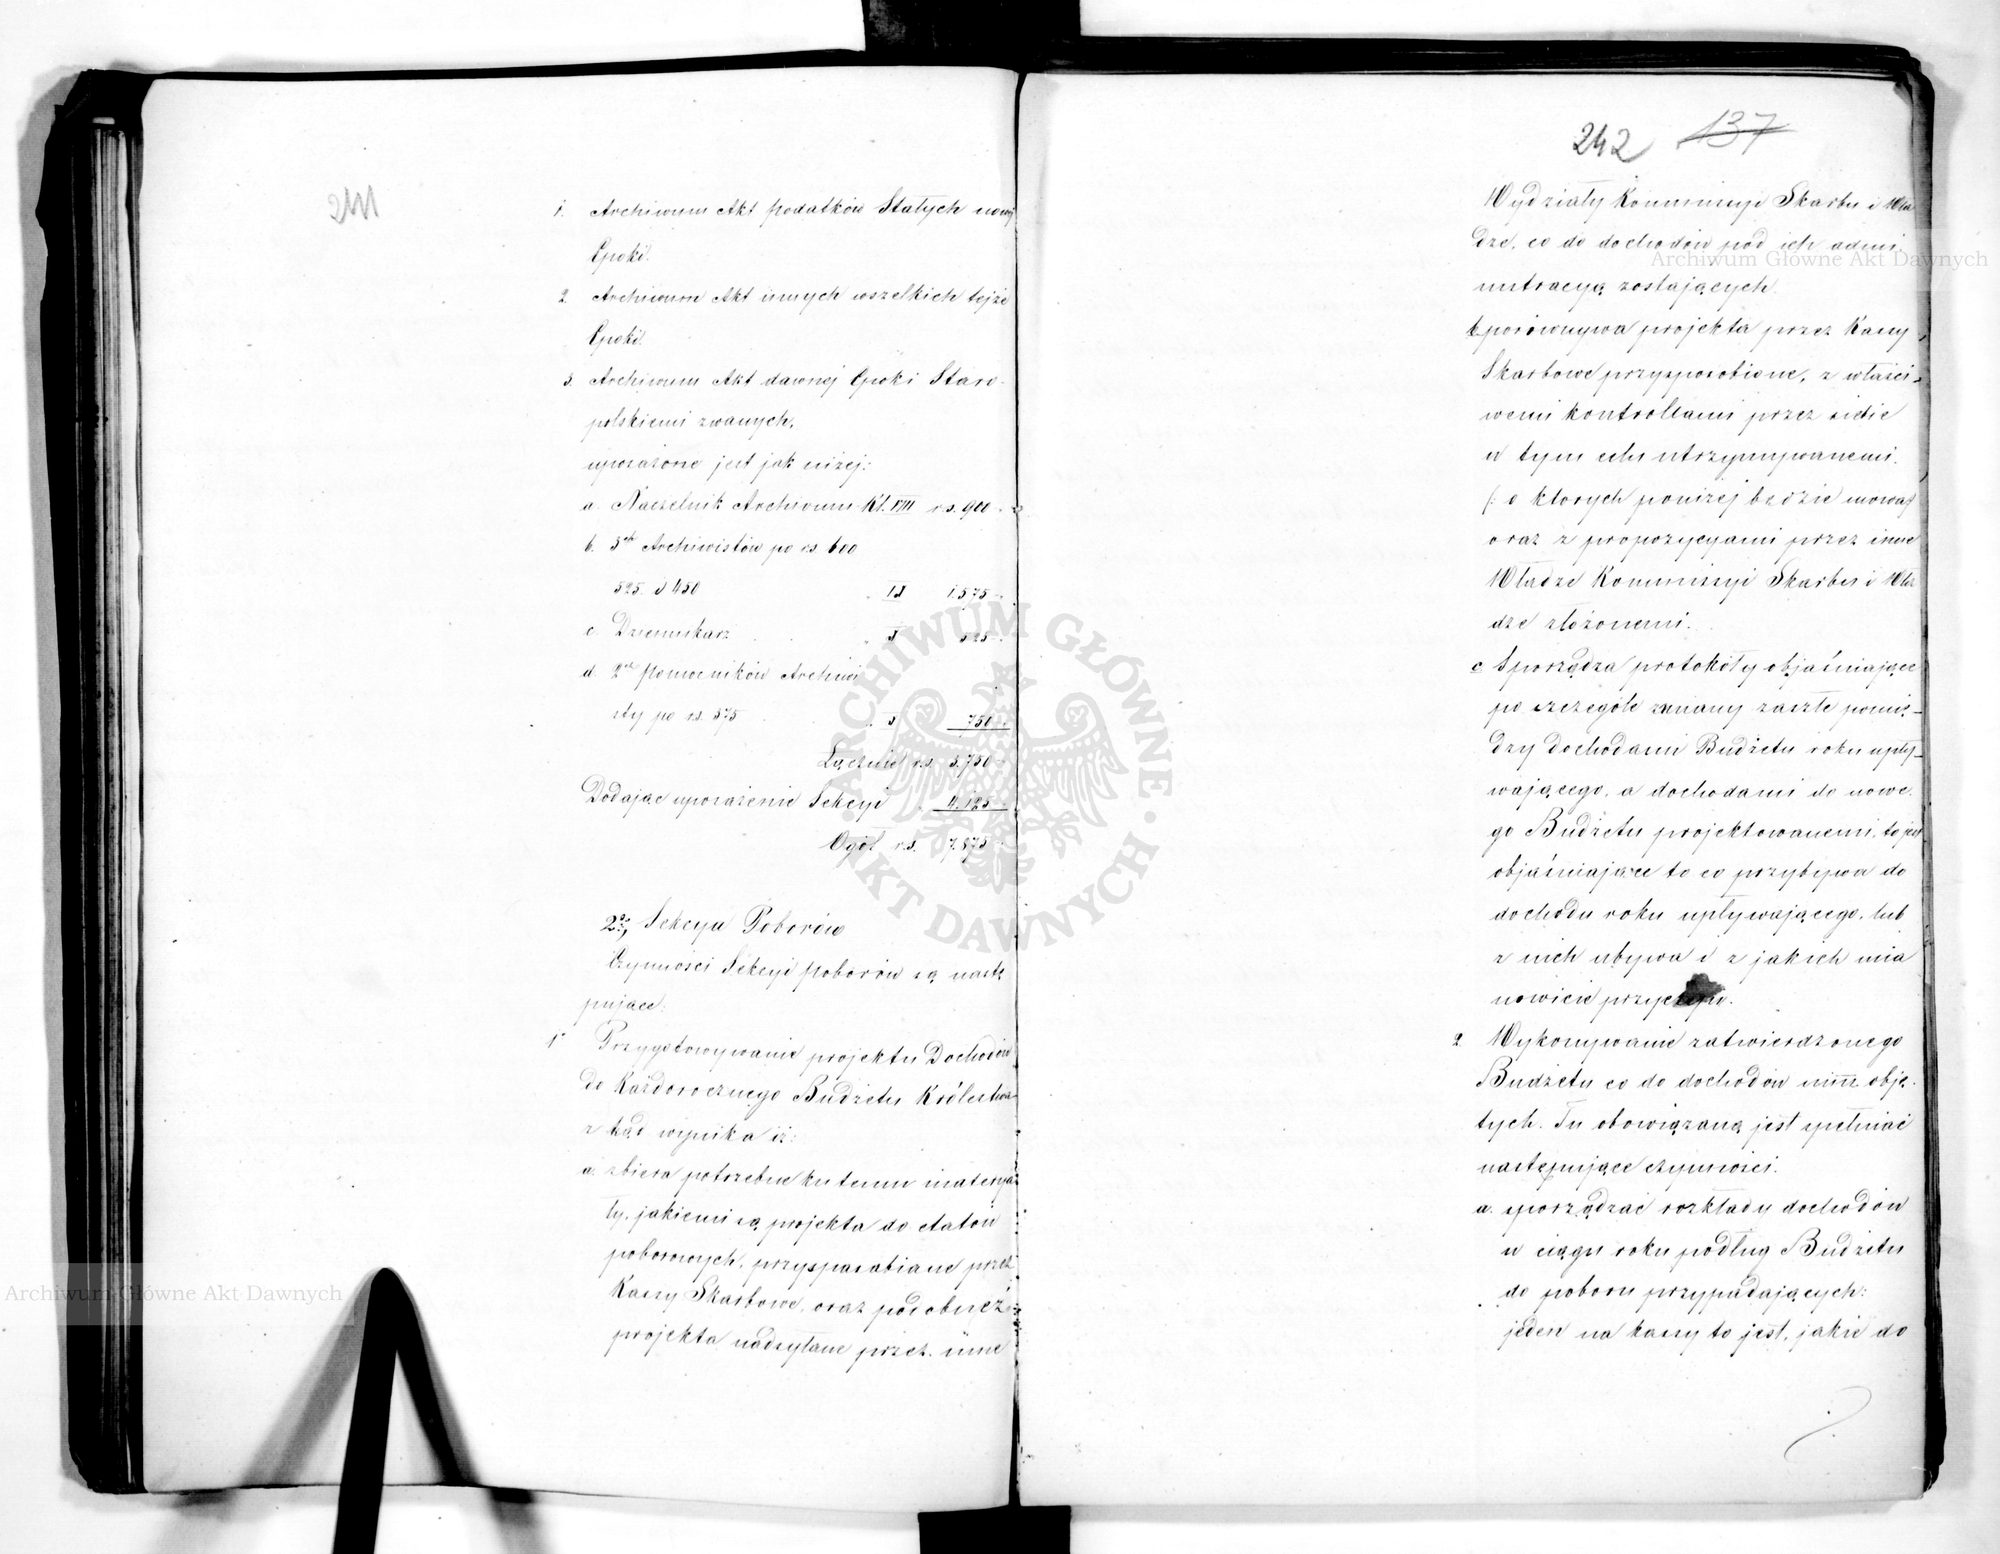 1. Archiwum Akt podatków Stałych nowej
Epoki.
2. Archiwum Akt innych wszelkich tejże
Epoki.
3. Archiwum Akt dawnej Epoki Staro-
polskiemi zwanych,
uposażone jest jak niżej:
a. Naczelnik Archiwum Kl. VIII rs. 900
b. 3ch Archiwistów po rs. 600
525. i 450 " IX 1.575
c. Dziennikarz " X 525
d. 2ch Pomocników Archiwi
sty po rs. 375 " X 750
Łącznie rs. 3.750
Dodając uposażenie Sekcyi " 4.125
Ogół rs. 7.875
2o, Sekcya Poborów
Czynności Sekcyi Poborów są nastę
pujące:
1o Przygotowywanie projektu Dochodów
do Każdorocznego Budżetu Królestwa
z kąd wynika iż:
a. zbiera potrzebne ku temu materya
ły, jakiemi są projekta do etatów
poborowych, przysposabiane przez
Kassy Skarbowe, oraz podobneż
projekta nadsyłane przez inne
242 137
Wydziały Kommissyi Skarbu i Wła
dze, co do dochodów pod ich admi-
nistracyą zostających.
b. porównywa projekta przez Kassy
Skarbowe przysposobione, z właści-
wemi kontrollami przez siebie
w tym celu utrzymywanemi.
(: o których poniżej będzie mowa :)
oraz z propozycyami przez inne
Władze Kommissyi Skarbu i Wła
dze złożonemi.
c Sporządza protokóły objaśniające
po szczególe zmiany zaszłe pomię-
dzy dochodami Budżetu roku upły-
wającego, a dochodami do nowe-
go Budżetu projektowanemi, to jest
objaśniające to co przybywa do
dochodu roku upływającego, lub
z nich ubywa i z jakich mia
nowicie przyczyn.
2. Wykonywanie zatwierdzonego
Budżetu co do dochodów nim obję-
tych. Tu obowiązaną jest spełniać
następujące czynności.
a. sporządzać rozkładu dochodów
w ciągu roku podług Budżetu
do poboru przypadających:
jeden na kassy to jest, jakie do
Archiwum Główne Akt Dawnych
Archiwum Główne Akt Dawnych
ARCHIWUM GŁÓWNE · AKT DAWNYCH ·